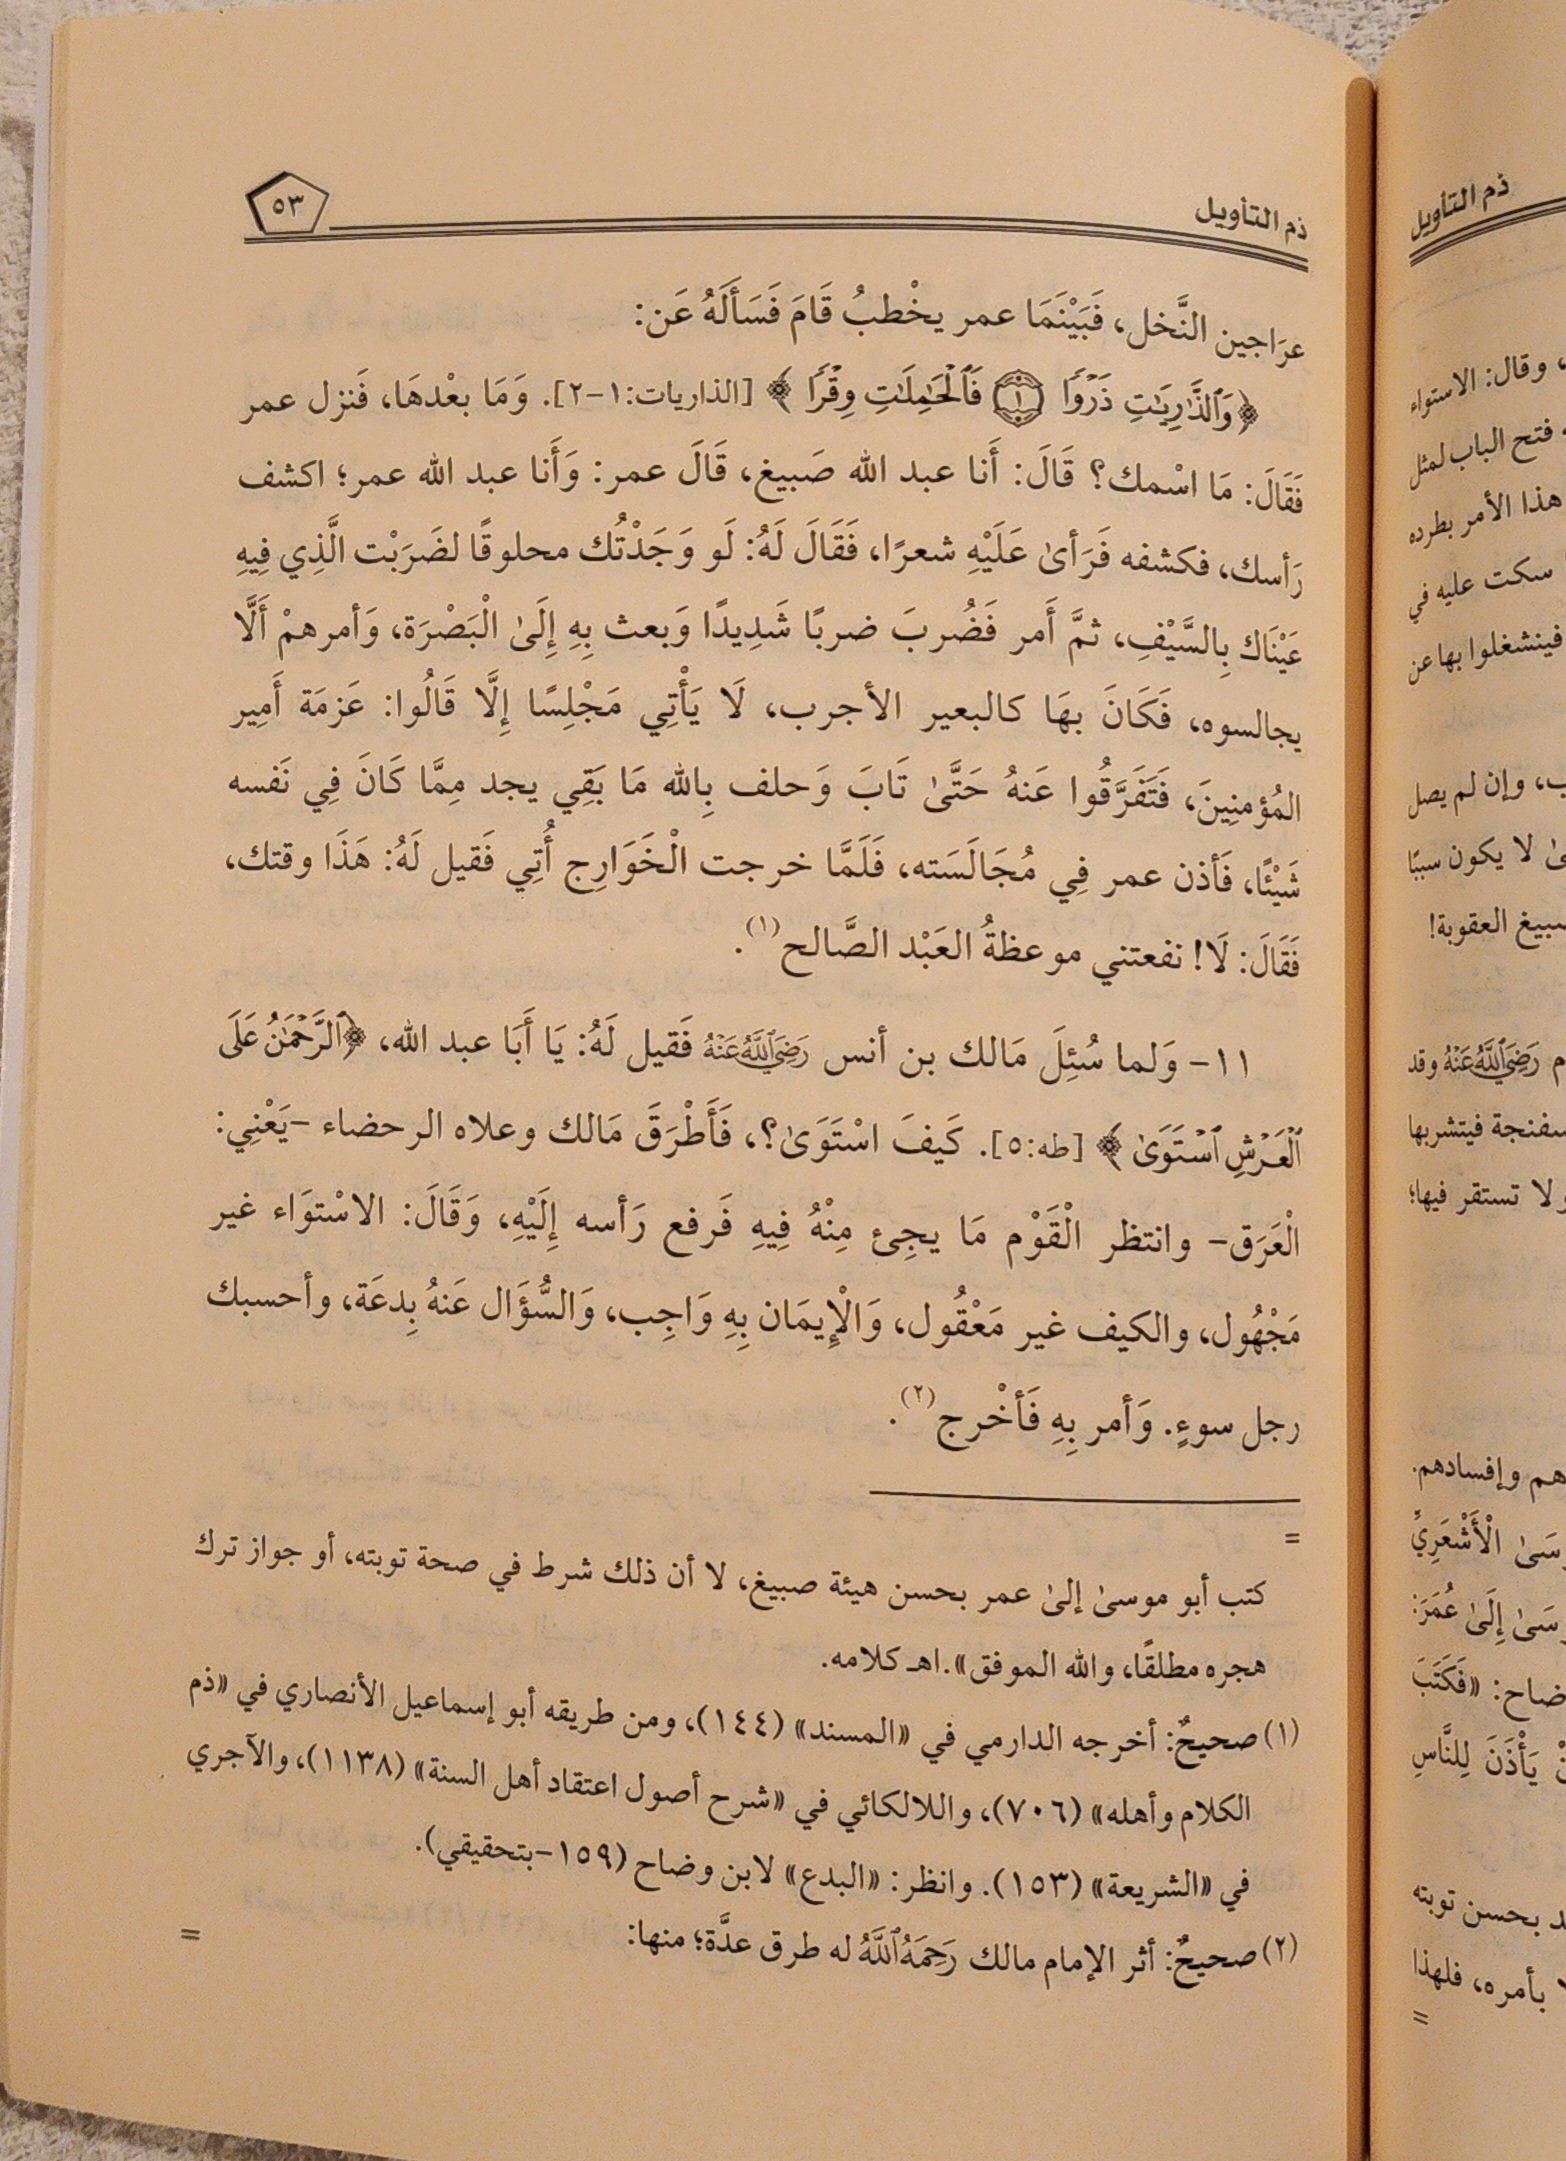 ذم التأويل
٥٣
عرَاجين النَّخل، فَبَيْنَمَا عمر يخْطبُ قَامَ فَسَأَلَهُ عَن:
﴿وَٱلذَّٰرِيَٰتِ ذَرۡوٗا ۝١ فَٱلۡحَٰمِلَٰتِ وِقۡرٗا﴾ [الذاريات:١-٢]. وَمَا بعْدهَا، فَنزل عمر
فَقَالَ: مَا اسْمك؟ قَالَ: أَنا عبد الله صَبيغ، قَالَ عمر: وَأَنا عبد الله عمر؛ اكشف
رَأسك، فكشفه فَرَأىٰ عَلَيْهِ شعرًا، فَقَالَ لَهُ: لَو وَجَدْتُك محلوقًا لضَرَبْت الَّذِي فِيهِ
عَيْنَاك بِالسَّيْفِ، ثمَّ أَمر فَضُربَ ضربًا شَدِيدًا وَبعث بِهِ إِلَىٰ الْبَصْرَة، وَأمرهمْ أَلَّا
يجالسوه، فَكَانَ بهَا كالبعير الأجرب، لَا يَأْتِي مَجْلِسًا إِلَّا قَالُوا: عَزمَة أَمِير
المُؤمنِينَ، فَتَفَرَّقُوا عَنهُ حَتَّىٰ تَابَ وَحلف بِالله مَا بَقِي يجد مِمَّا كَانَ فِي نَفسه
شَيْئًا، فَأذن عمر فِي مُجَالَسَته، فَلَمَّا خرجت الْخَوَارِج أُتِي فَقيل لَهُ: هَذَا وقتك،
فَقَالَ: لَا! نفعتني موعظةُ العَبْد الصَّالح(١).
١١- وَلما سُئِلَ مَالك بن أنس رَضِيَٱللَّهُعَنْهُ فَقيل لَهُ: يَا أَبَا عبد الله، ﴿ٱلرَّحۡمَٰنُ عَلَى
ٱلۡعَرۡشِ ٱسۡتَوَىٰ﴾ [طه:٥]. كَيفَ اسْتَوَىٰ؟، فَأَطْرَقَ مَالك وعلاه الرحضاء -يَعْنِي:
الْعَرَق- وانتظر الْقَوْم مَا يجِئ مِنْهُ فِيهِ فَرفع رَأسه إِلَيْهِ، وَقَالَ: الاسْتوَاء غير
مَجْهُول، والكيف غير مَعْقُول، وَالْإِيمَان بِهِ وَاجِب، وَالسُّؤَال عَنهُ بِدعَة، وأحسبك
رجل سوءٍ. وَأمر بِهِ فَأخْرج(٢).
=
كتب أبو موسىٰ إلىٰ عمر بحسن هيئة صبيغ، لا أن ذلك شرط في صحة توبته، أو جواز ترك
هجره مطلقًا، والله الموفق». اهـ كلامه.
(١) صحيحٌ: أخرجه الدارمي في «المسند» (١٤٤)، ومن طريقه أبو إسماعيل الأنصاري في «ذم
الكلام وأهله» (٧٠٦)، واللالكائي في «شرح أصول اعتقاد أهل السنة» (١١٣٨)، والآجري
في «الشريعة» (١٥٣). وانظر: «البدع» لابن وضاح (١٥٩-بتحقيقي).
(٢) صحيحٌ: أثر الإمام مالك رَحِمَهُٱللَّهُ له طرق عدَّة؛ منها:
=
ذم التأويل
، وقال: الاستواء
فتح الباب لمثل
هذا الأمر بطرده
سكت عليه في
فينشغلوا بها عن
، وإن لم يصل
لا يكون سببًا
صبيغ العقوبة!
رَضِيَٱللَّهُعَنْهُ وقد
سفنجة فيتشربها
ولا تستقر فيها؛
هم وإفسادهم.
الْأَشْعَرِيِّ
إِلَىٰ عُمَرَ:
وضاح: «فَكَتَبَ
يَأْذَنَ لِلنَّاسِ
بحسن توبته
بأمره، فلهذا
=